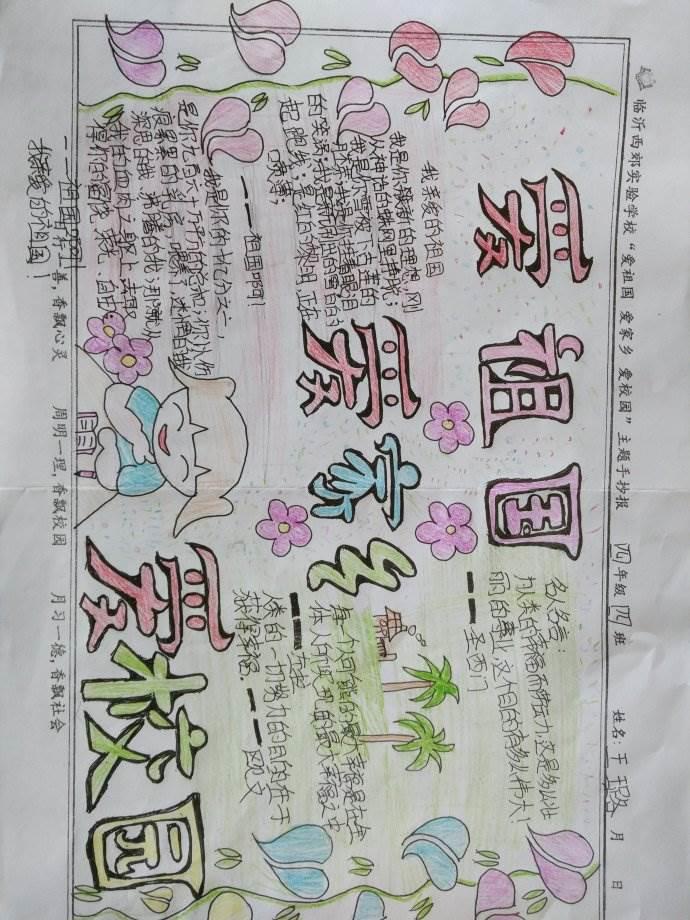 临沂西郊实验学校“爱祖国 爱家乡 爱校园”主题手抄报 四年级四班 姓名:王 月 日
爱祖国
爱家乡
爱校园
我亲爱的祖国
我是你簇新的理想,刚
从神话的蛛网里挣脱;
我是你雪被下古莲的
胚芽;我是你挂着眼泪
的笑涡;我是新刷出的雪白的
起跑线;是绯红的黎明 正在
喷薄;
——祖国啊!
我是你的十亿分之一
是你九百六十万平方的总和;你以伤
痕累累的乳房 喂养了 迷惘的我
深思的我 沸腾的我;那就从
我的血肉之躯上 去取
得你的富饶 荣光 自由;
——祖国啊!
我亲爱的祖国!
名人名言:
为人类的幸福而劳动,这是多么壮
丽的事业,这个目的有多么伟大!
——圣西门
每一个可能的最大幸福是在全
体人所实现的最大幸福之中
——左拉
人类的一切努力的目的在于
获得幸福 ——欧文
善,香飘心灵 周明一理,香飘校园 月习一德,香飘社会